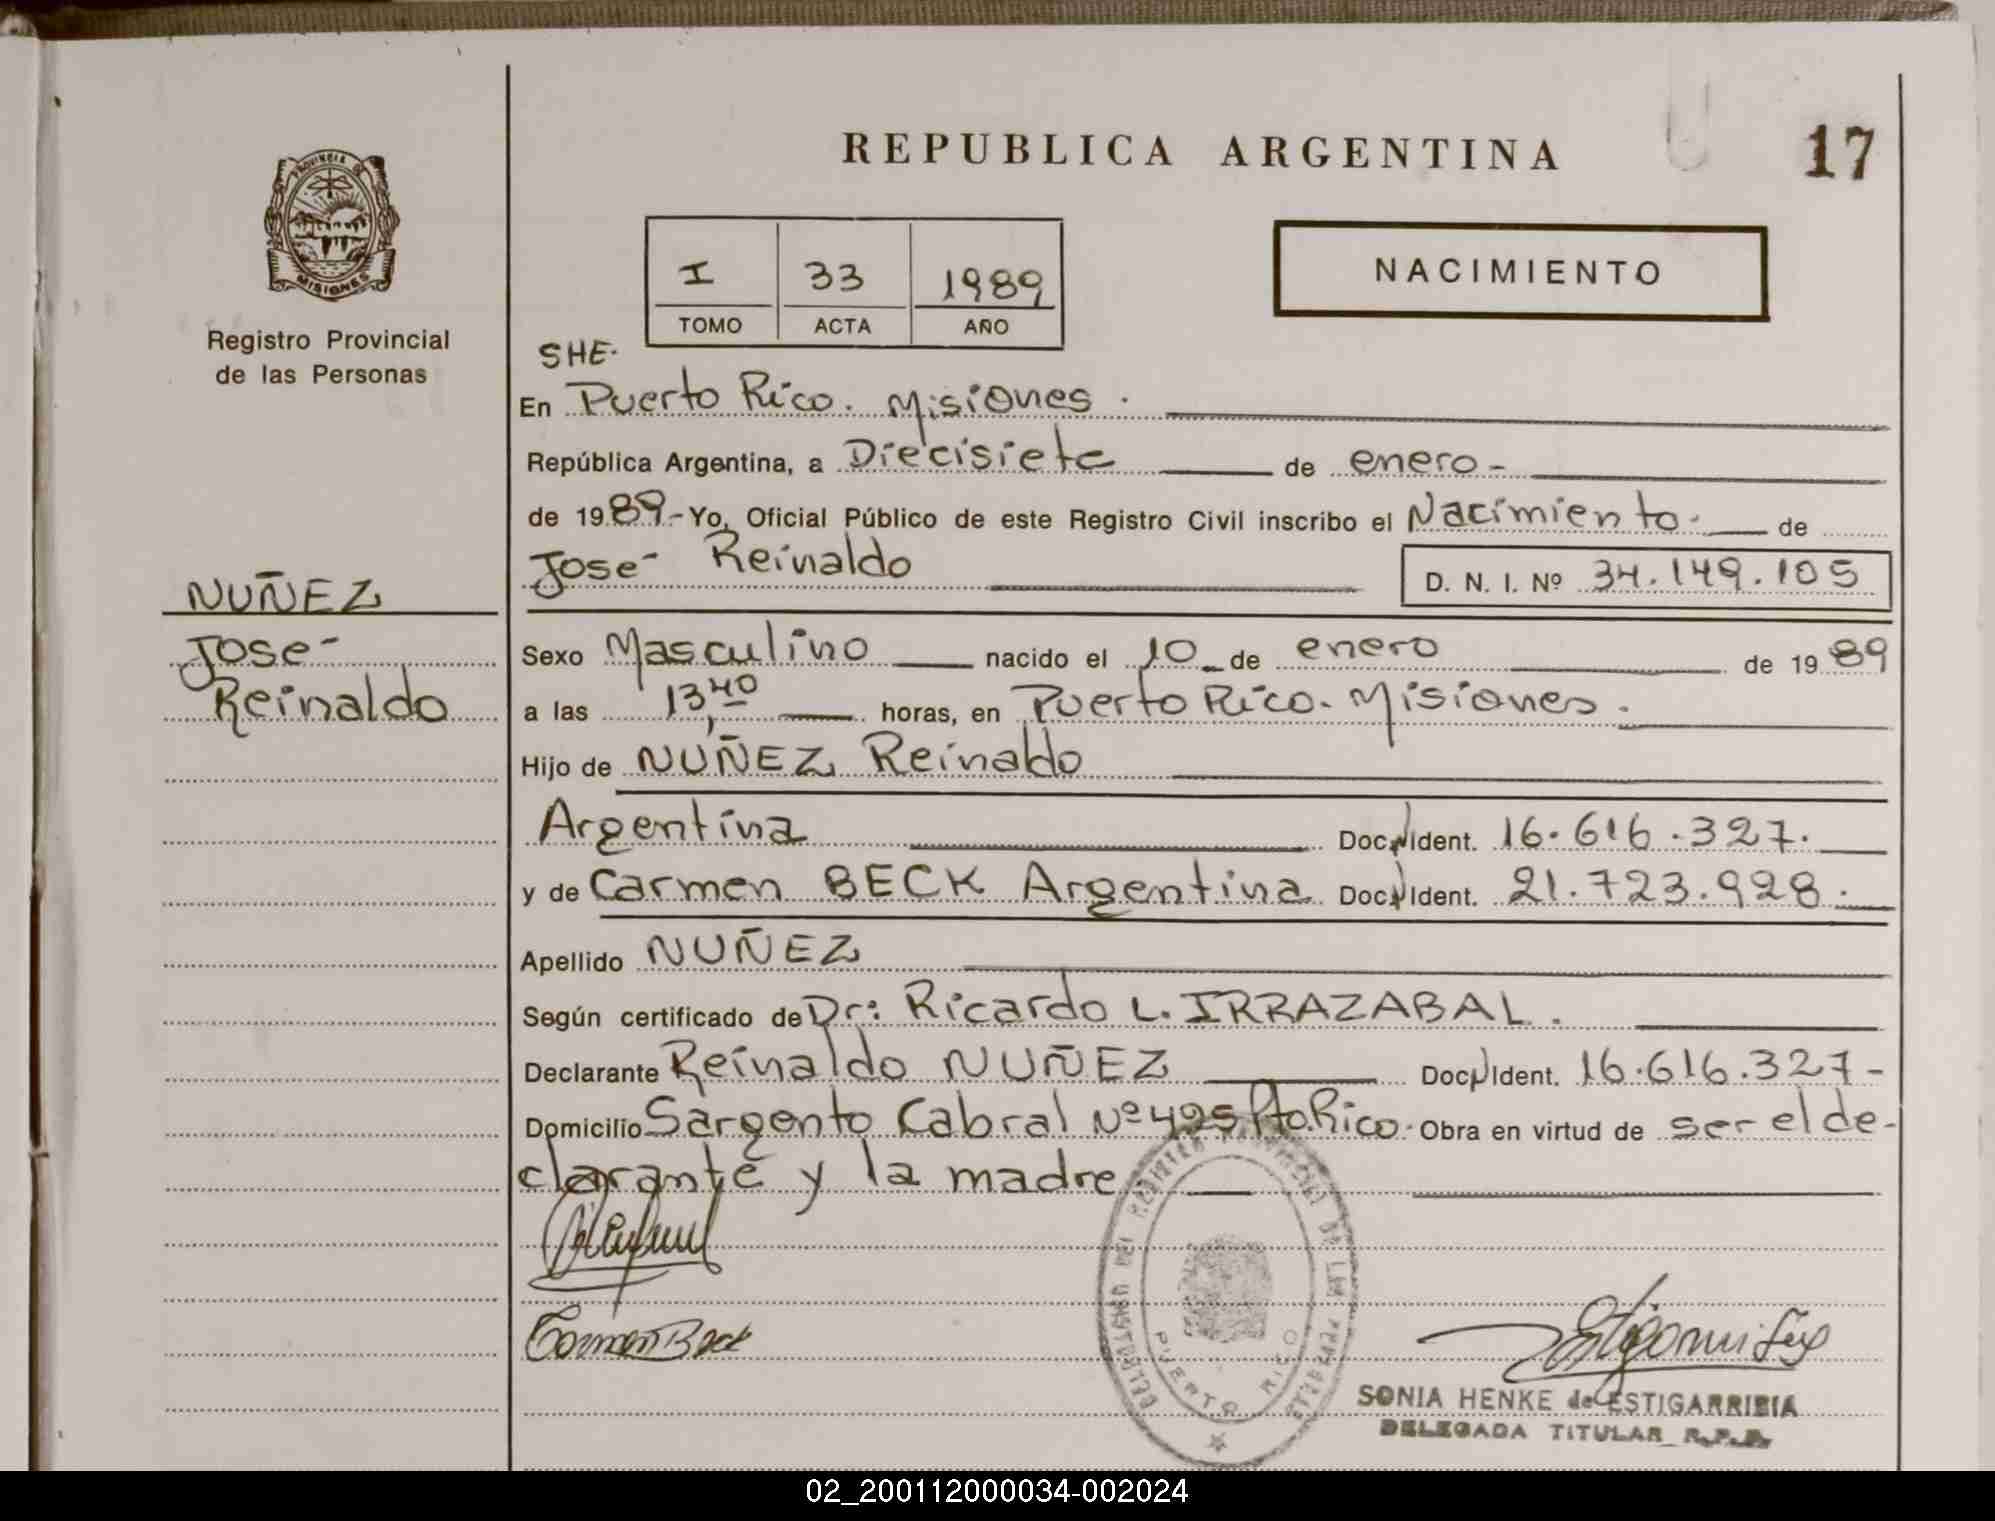 REPUBLICA ARGENTINA
17
PROVINCIA DE
MISIONES
Registro Provincial
de las Personas
I 33 1989
TOMO ACTA AÑO
NACIMIENTO
SHE.
En Puerto Rico. Misiones.
República Argentina, a Diecisiete de enero-
de 1989- Yo, Oficial Público de este Registro Civil inscribo el Nacimiento. de
José Reinaldo
D. N. I. Nº 34.149.105
NUÑEZ
José
Reinaldo
Sexo Masculino nacido el 10 de enero de 1989
a las 13,40 horas, en Puerto Rico. Misiones.
Hijo de NUÑEZ Reinaldo
Argentina Doc. Ident. 16.616.327.
y de Carmen BECK Argentina Doc. Ident. 21.723.928.
Apellido NUÑEZ
Según certificado de Dr: Ricardo L. IRRAZABAL.
Declarante Reinaldo NUÑEZ Doc. Ident. 16.616.327-
Domicilio Sargento Cabral Nº 425 Pto. Rico. Obra en virtud de ser el de-
clarante y la madre
Carmen Beck
PUERTO RICO
SONIA HENKE de ESTIGARRIBIA
DELEGADA TITULAR R.P.P.
02_200112000034-002024